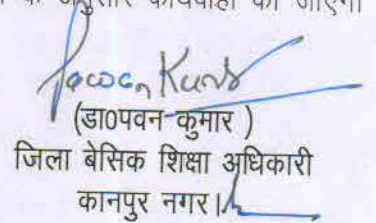 के अनुसार कार्यवाही की जाएगी
(डा0पवन कुमार )
जिला बेसिक शिक्षा अधिकारी
कानपुर नगर।